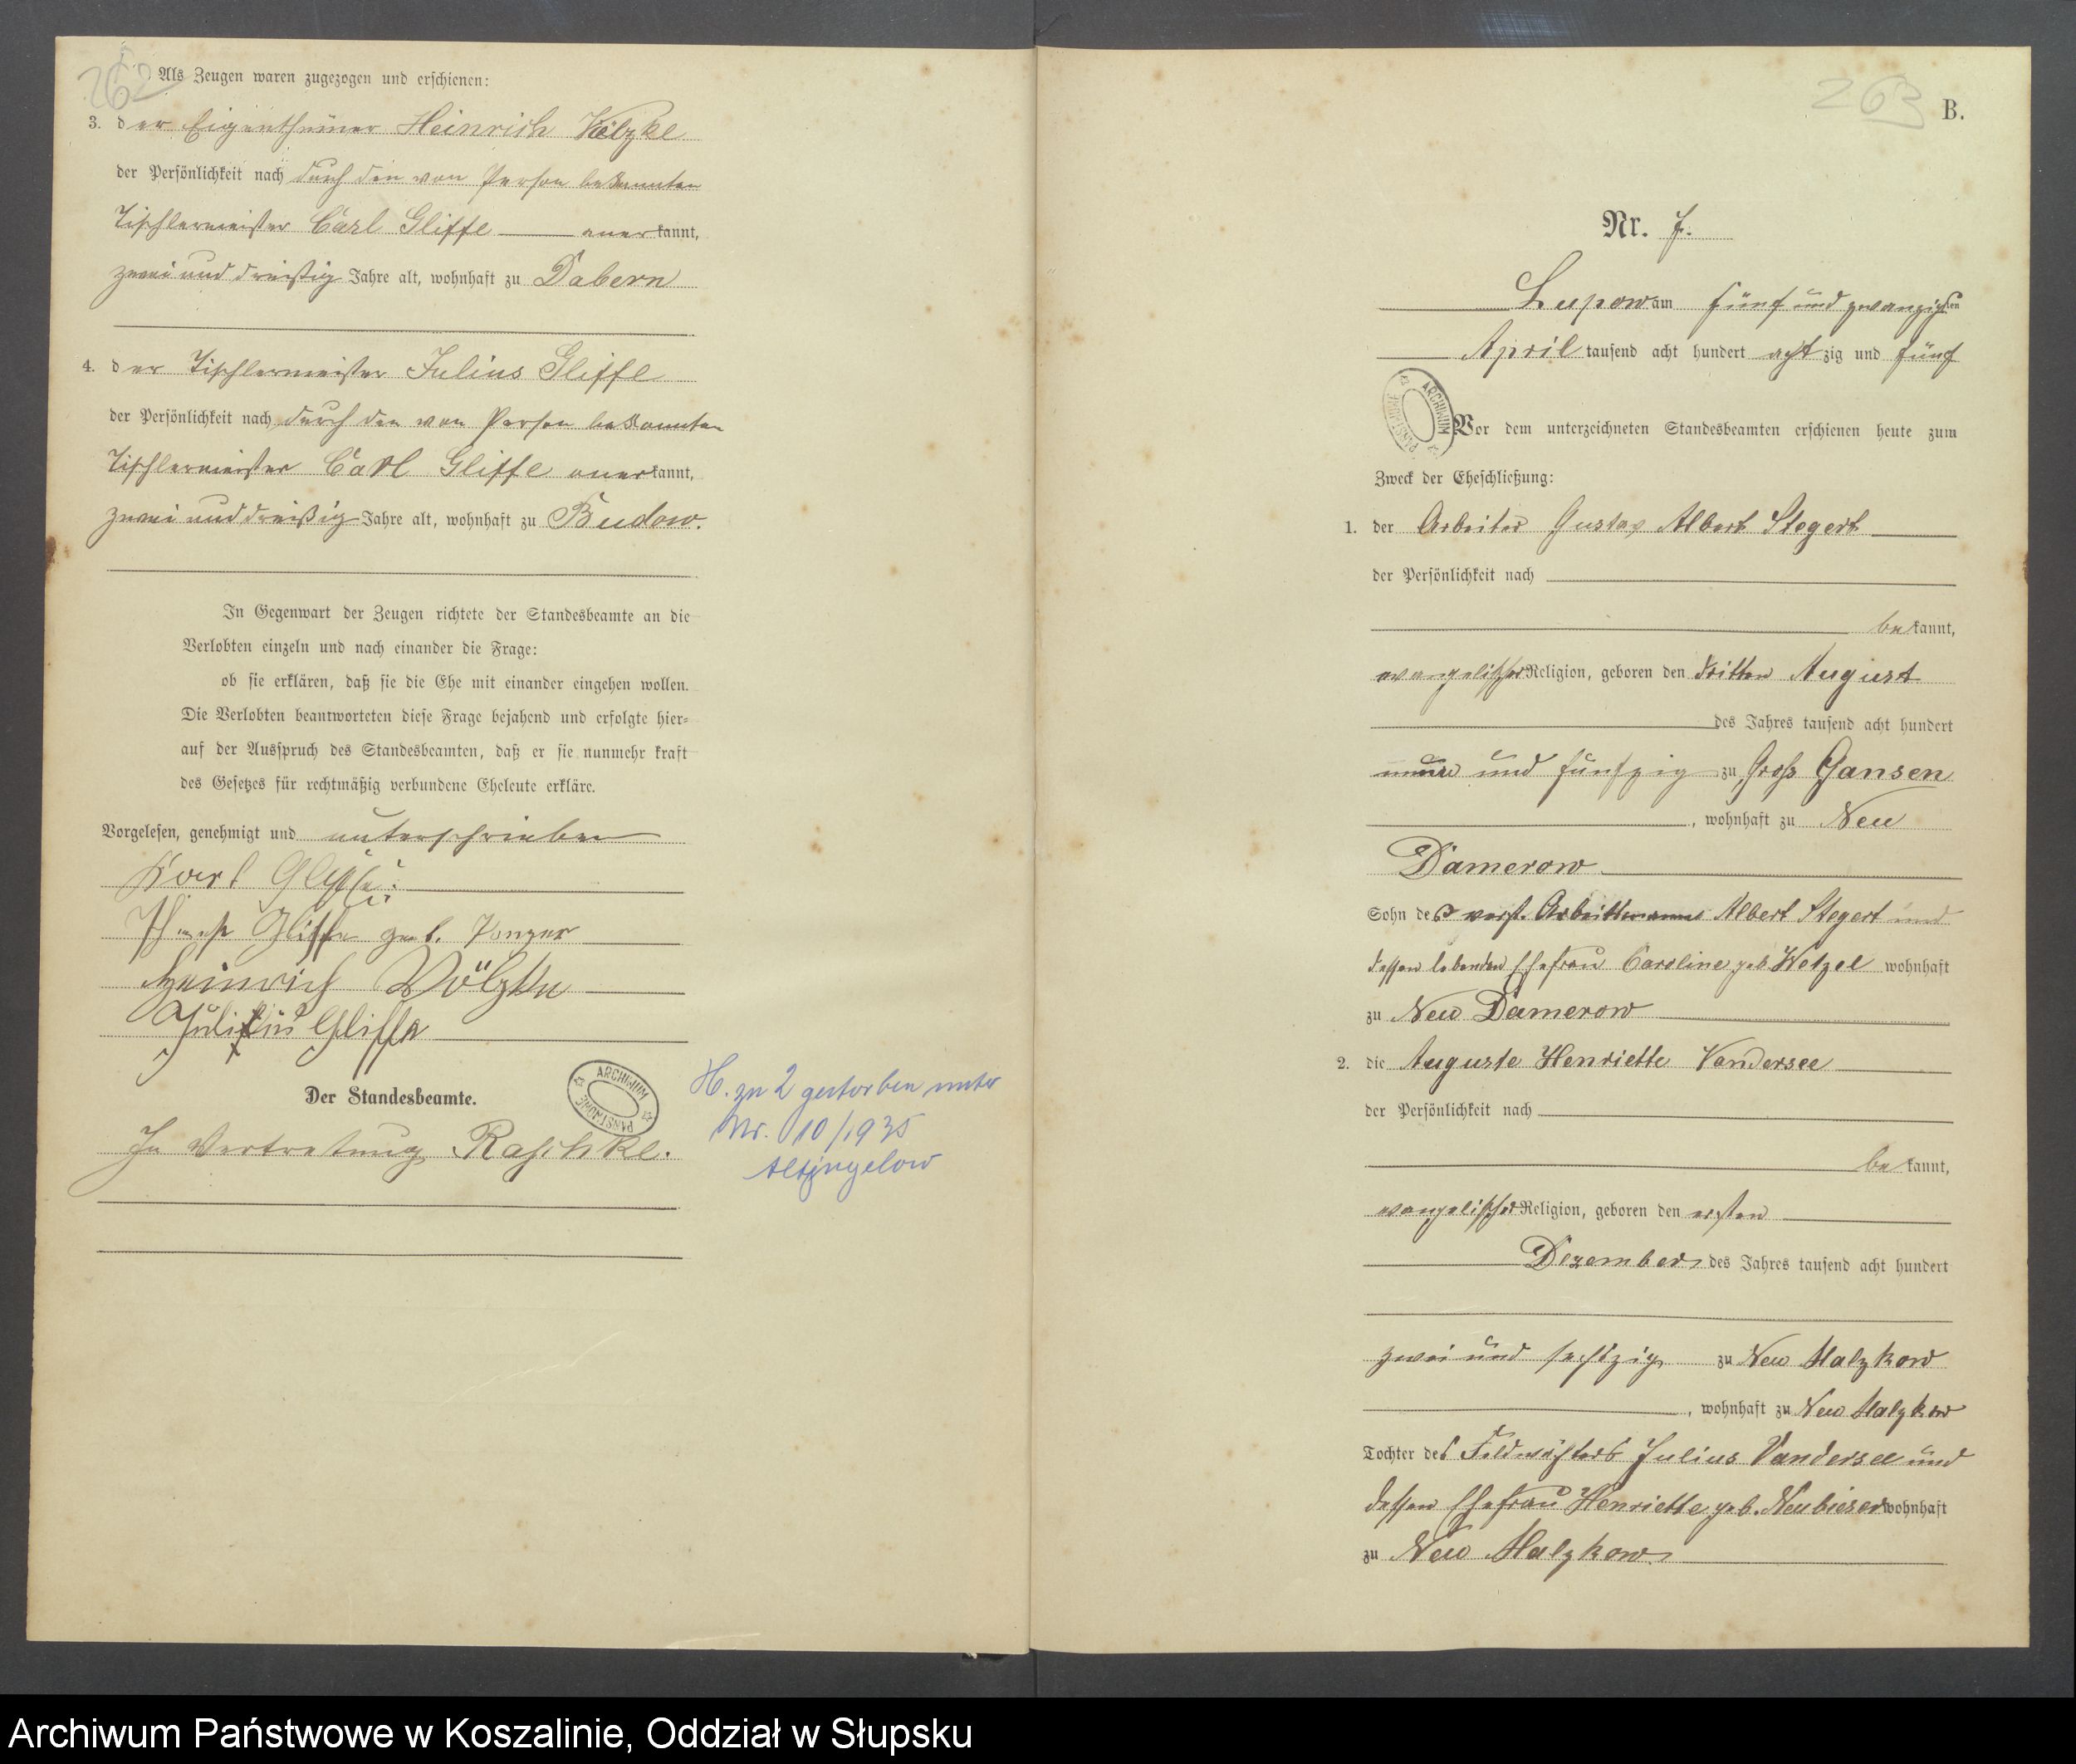 262
Als Zeugen waren zugezogen und erschienen:
3. der Eigenthümer Heinrich Völzke
der Persönlichkeit nach durch den von Person bekannten
Tischlermeister Carl Gliffe anerkannt,
zwei und dreißig Jahre alt, wohnhaft zu Dabern
4. der Tischlermeister Julius Gliffe
der Persönlichkeit nach durch den von Person bekannten
Tischlermeister Carl Gliffe anerkannt,
zwei und dreißig Jahre alt, wohnhaft zu Budow.
In Gegenwart der Zeugen richtete der Standesbeamte an die
Verlobten einzeln und nach einander die Frage:
ob sie erklären, daß sie die Ehe mit einander eingehen wollen.
Die Verlobten beantworteten diese Frage bejahend und erfolgte hier-
auf der Ausspruch des Standesbeamten, daß er sie nunmehr kraft
des Gesetzes für rechtmäßig verbundene Eheleute erkläre.
Vorgelesen, genehmigt und unterschrieben
Karl Gliffe
Gliffe geb.
Heinrich Völzke
Julius Gliffe
Der Standesbeamte.
In Vertretung Raschke.
ARCHIWUM PAŃSTWOWE
H. zu 2 gestorben unter
Nr. 10/1935
263
B.
Nr. 7.
Lupow am fünf und zwanzigsten
April tausend acht hundert achtzig und fünf
ARCHIWUM PAŃSTWOWE
Vor dem unterzeichneten Standesbeamten erschienen heute zum
Zweck der Eheschließung:
1. der Arbeiter Gustav Albert Stegert
der Persönlichkeit nach
bekannt,
evangelischer Religion, geboren den dritten August
des Jahres tausend acht hundert
neun und fünfzig zu Groß Gansen
, wohnhaft zu Neu
Damerow
Sohn des verst. Arbeitsmanns Albert Stegert und
dessen lebenden Ehefrau Caroline geb. Wetzel wohnhaft
zu Neu Damerow
2. die Auguste Henriette Vandersee
der Persönlichkeit nach
bekannt,
evangelischer Religion, geboren den ersten
Dezember des Jahres tausend acht hundert
zwei und sechszig zu Neu Malzkow
, wohnhaft zu Neu Malzkow
Tochter des Feldwächters Julius Vandersee und
dessen Ehefrau Henriette geb. Neubieser wohnhaft
zu Neu Malzkow
Archiwum Państwowe w Koszalinie, Oddział w Słupsku